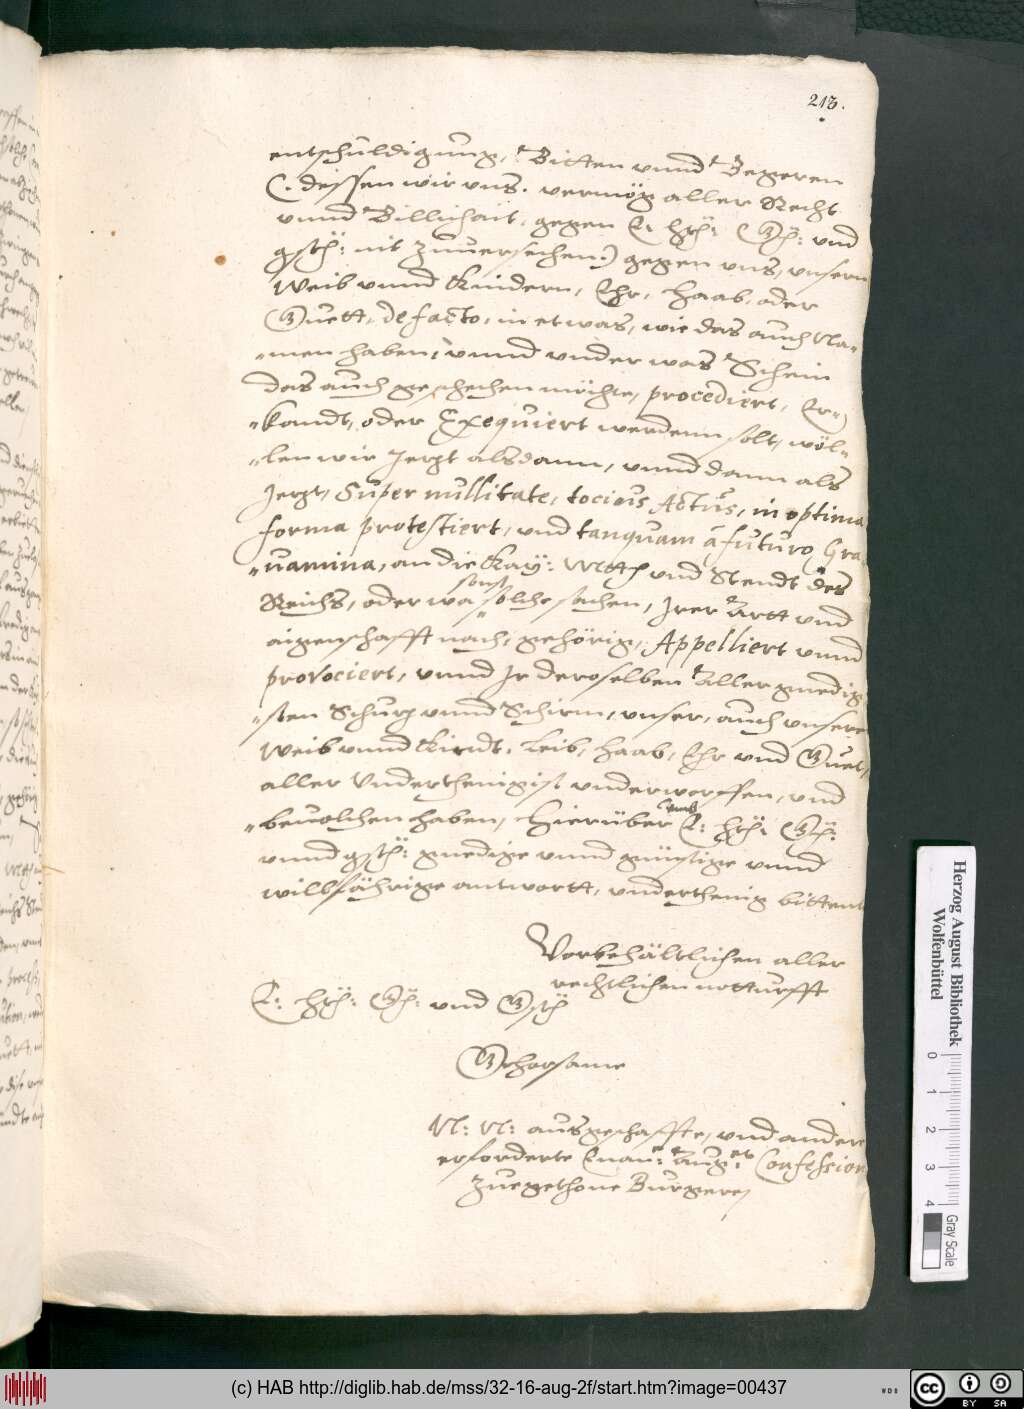 213.
entschuldigung, Bitten vnnd Begeren
(. dessen wir vns. vermög aller Recht
vnnd Billichait, gegen E. hch: Gh: vnd
gstch: nit zuuersechen.) gegen vns, vnsern
Weib vnnd Kindern, Ehr, Haab, oder
Guett, de facto, in etwas, wie das auch Na-
-men haben, vnnd vnder was Schein
das auch geschechen möchte, procediert, Er-
-kandt, oder Exequiert werdenn solt, wöl-
-len wir Jerzt alsdann, vnnd dann als
Jerzt, Super nullitate, tocius Actus, in optima
forma protestiert, vnd tanquam à futuro Gra-
-uamina, an die Kay: Mtt vnd Stendt des
Reichs, oder wa sonst solche sachen, Irer Artt vnd
aigenschafft nach, gehörig, Appelliert vnnd
provociert, vnnd Jr deroselben Aller gnedig-
-sten Schurz vnnd Schirm, vnser, auch vnsere
Weib vnnd Kindt, Leib, Haab, Ehr vnd Guet,
aller Vnderthenigist vnderworffen, vnd
-beuolchen haben, Hierüber E: hch: Gh:
vnnd gstch: gnedige vnnd günstige vnnd
willfährige antwortt, vnderthenig bittent
Vorbehältlichen aller
rechtlichen notturfft
E: hch: Gh: vnd Gstch
Gehorsame
N: N: ausgeschaffte, vnd andere
erforderte Aug: Confession
zuegethone Burgere
Herzog August Bibliothek
Wolfenbüttel
0 1 2 3 4
Gray Scale
(c) HAB http://diglib.hab.de/mss/32-16-aug-2f/start.htm?image=00437
WDB
cc BY SA